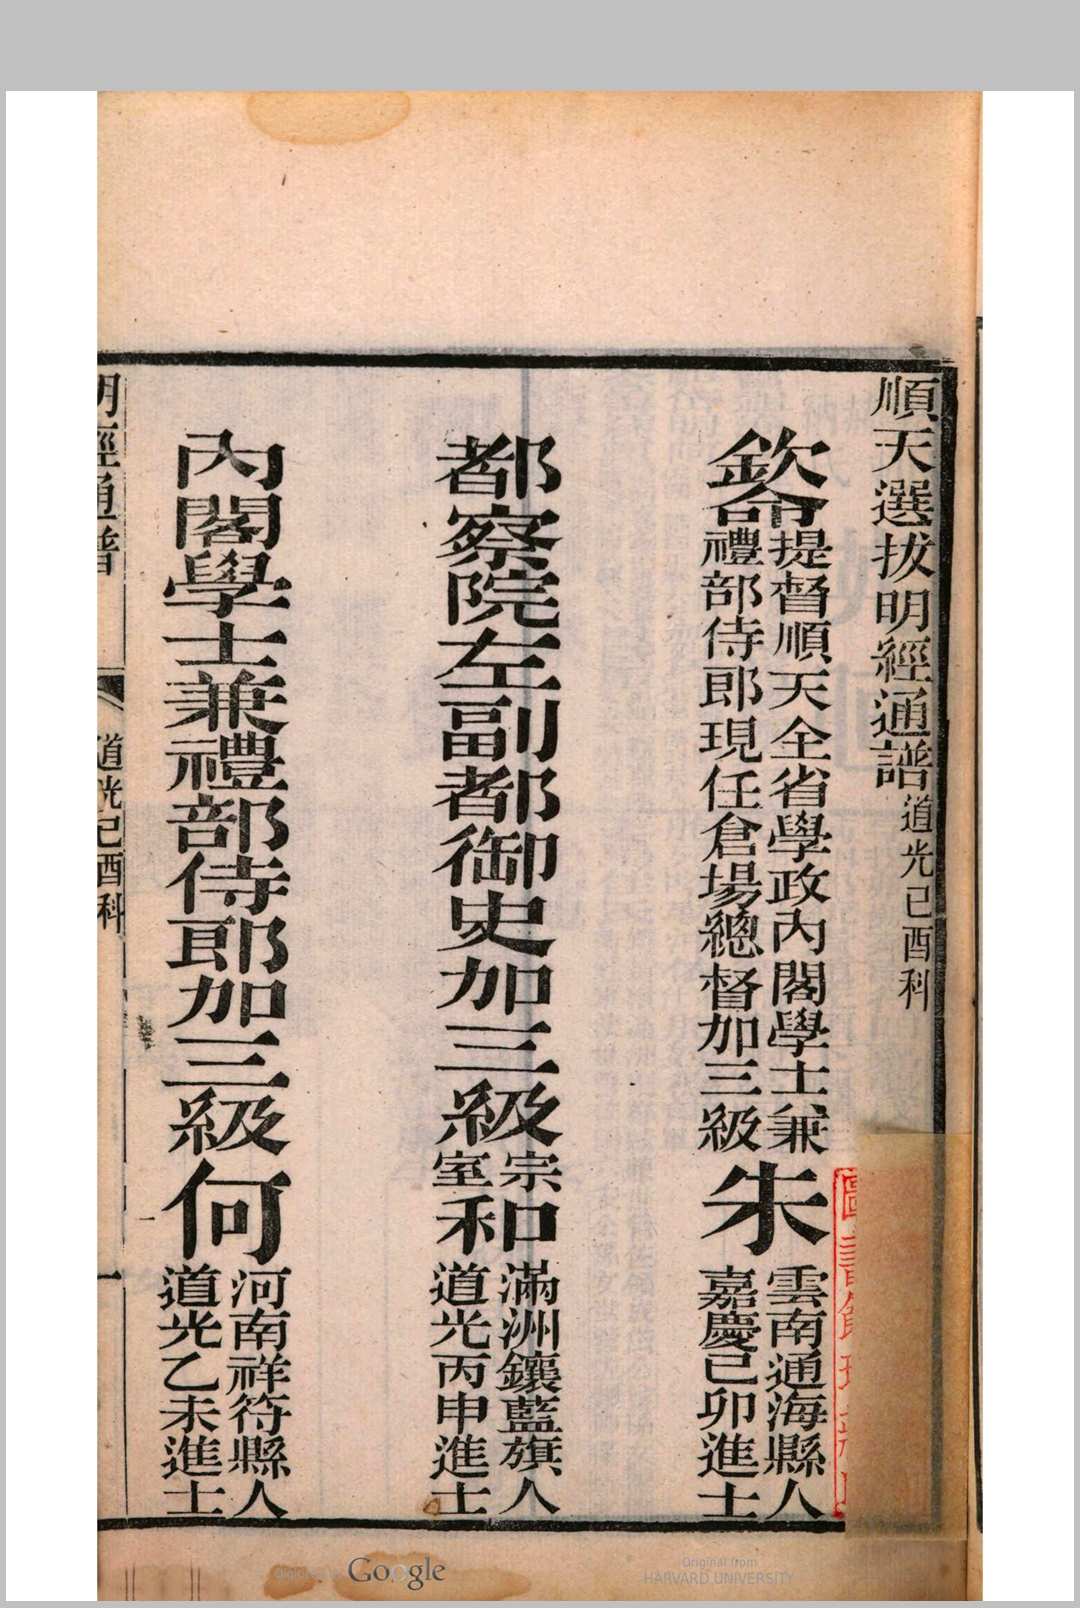 順天選拔明經通譜道光己酉科
欽命提督順天全省學政內閣學士兼
禮部侍郎現任倉場總督加三級
朱雲南通海縣人
嘉慶己卯進士
都察院左副都御史加三級宗室和滿洲鑲藍旗人
道光丙申進士
內閣學士兼禮部侍郎加三級何河南祥符縣人
道光乙未進士
明經通譜
道光己酉科
一
Digitized by Google
Original from
HARVARD UNIVERSITY